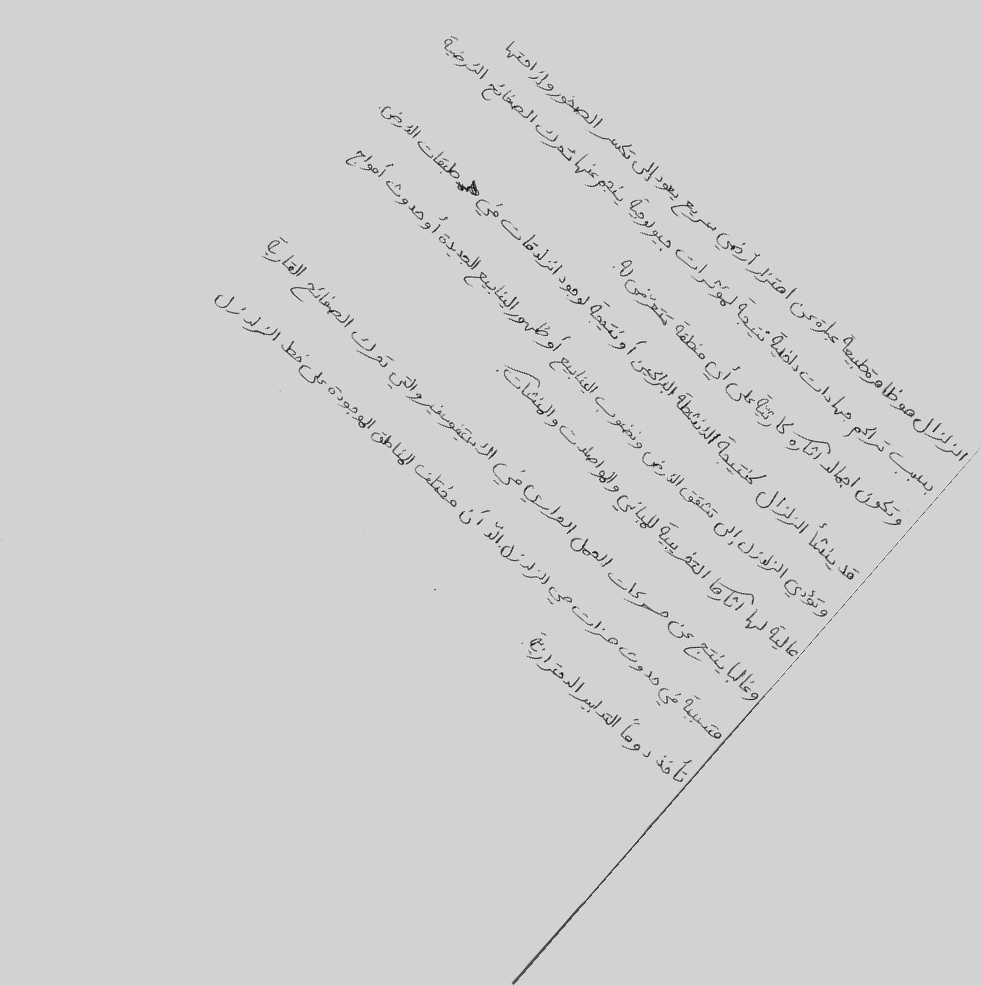 الزلزال هو ظاهرة طبيعية عبارة عن اهتزاز أرضي سريع يعود إلى تكسر الصخور وإزاحتها
بسبب تراكم جهادات داخلية نتيجة لمؤثرات جيولوجية ينجم عنها تحرك الصفائح الأرضية
وتكون اجمالا آثاره كارثية على أي منطقة تتعرض له.
قد ينشأ الزلزال كنتيجة لأنشطة البراكين أو نتيجة لوجود انزلاقات في طبقات الأرض.
وتؤدي الزلازل إلى تشقق الأرض ونضوب الينابيع أو ظهور الينابيع الجديدة أو حدوث أمواج
عالية لها آثارها التخريبية للمباني والمواصلات والمنشآت.
وغالبا ينتج عن حركات الحمل الحراري في الاسينوسفير والتي تحرك الصفائح القارية
متسببة في حدوث هزات هي الزلازل. الّا أنّ مختلف المناطق الموجودة على خط الزلازل
تأخذ دوماً التدابير الاحترازيّة.